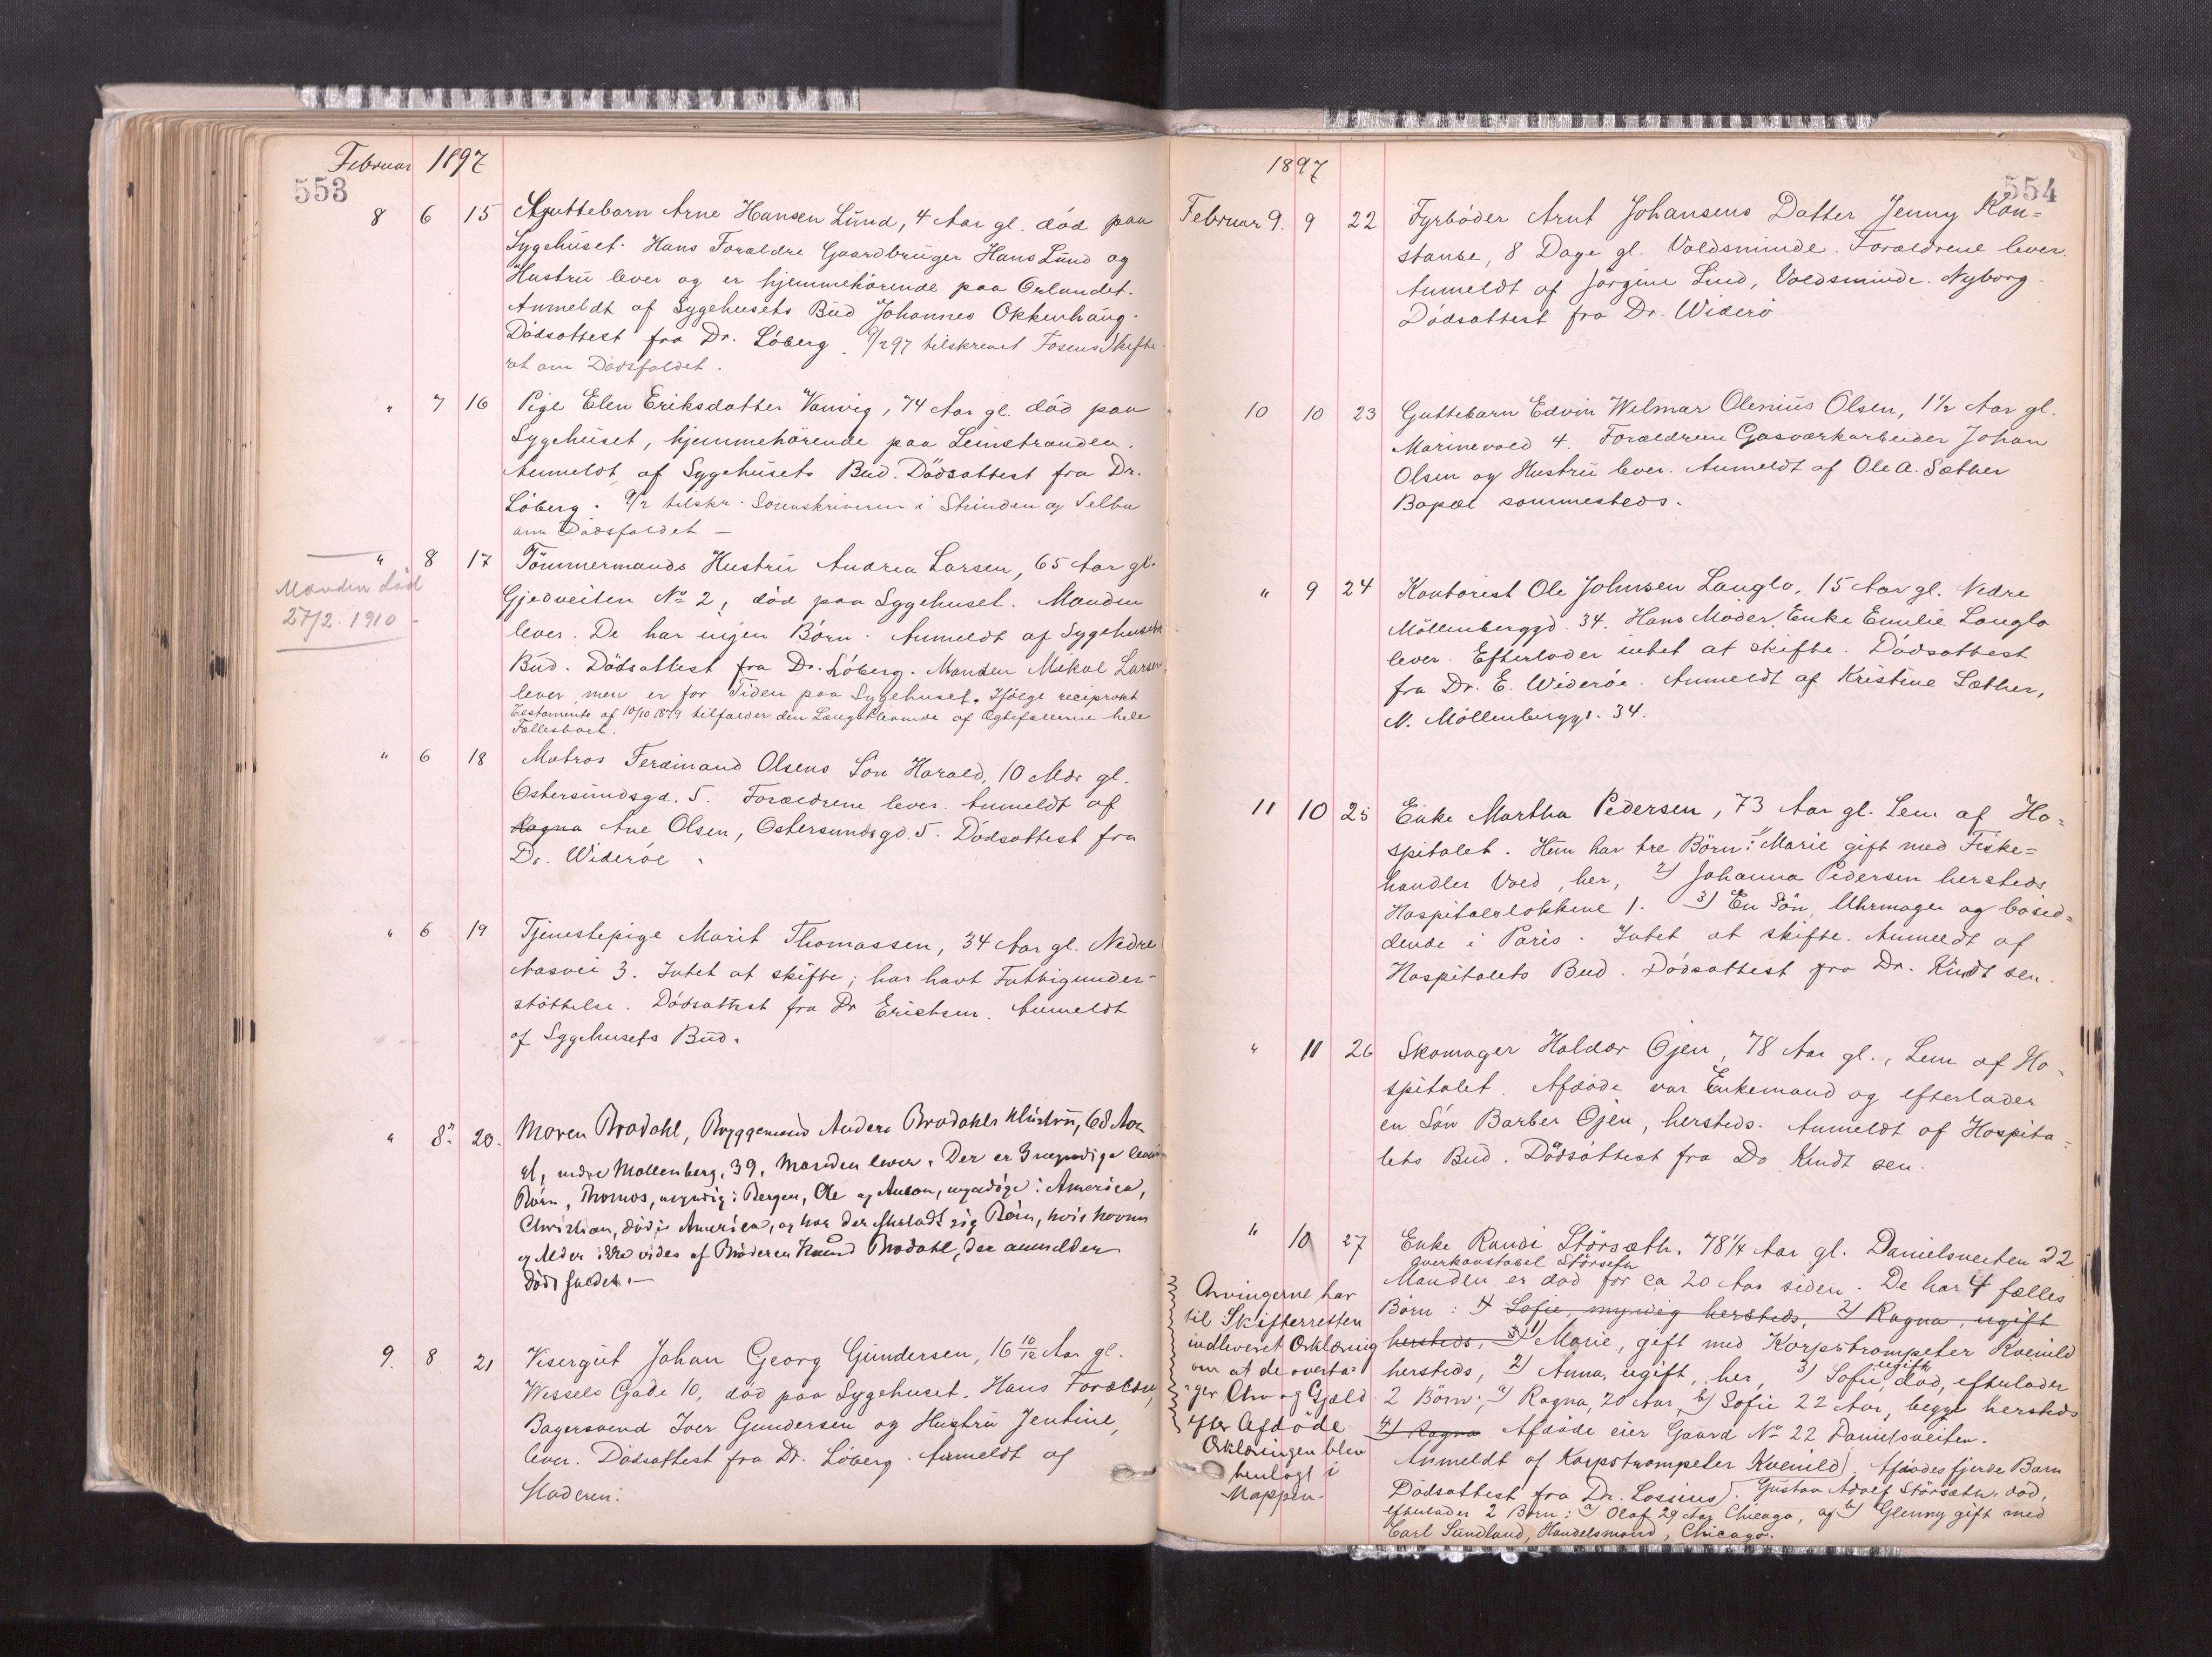 Februar 1897
553
8 6 15 Guttebarn Arne Hansen Lund, 4 Aar gl. död paa
Sygehuset. Hans Forældre Gaardbruger Hans Lund og
Hustru lever og er hjemmehörende paa Ørlandet.
Anmeldt af Sygehusets Bud Johannes Okkenhaug.
Dödsattest fra Dr. Löberg. 9/2 97 tilskrevet Fosens Skifte-
ret om Dödsfaldet.
" 7 16 Pige Elen Eriksdatter Vanvig, 74 Aar gl. död paa
Sygehuset, hjemmehörende paa Leinstranden.
Anmeldt af Sygehusets Bud. Dödsattest fra Dr.
Löberg. 9/2 tilskr. Sorenskriveren i Strinden og Selbu
om Dödsfaldet —
" 8 17 Tömmermands Hustru Andrea Larsen, 65 Aar gl.
Manden död
27/2. 1910
Gjedveiten No 2, död paa Sygehuset. Manden
lever. De har ingen Börn. Anmeldt af Sygehusets
Bud. Dödsattest fra Dr. Löberg. Manden Mikal Larsen
lever men er for Tiden paa Sygehuset. Ifölge reciprokt
Testamente af 10/10 1879 tilfalder den Længstlevende af Ægtefællerne hele
Fællesboet.
" 6 18 Matros Ferdinand Olsens Sön Harald, 10 Mdr gl.
Östersundsgd. 5. Forældrene lever. Anmeldt af
Ragna Ane Olsen, Östersundsgd. 5. Dödsattest fra
Dr. Wideröe.
" 6 19 Tjenestepige Marit Thomassen, 34 Aar gl. Nedre
Aasvei 3. Intet at skifte; har havt Fattigunder-
stöttelse. Dödsattest fra Dr Erichsen. Anmeldt
af Sygehusets Bud.
" 8" 20. Maren Brodahl, Bryggemand Anders Brodahls Hustru, 68 Aar
gl, nedre Mollenberg. 39, Manden lever. Der er 3 myndige
Börn, Thomas, myndig i Bergen, Ole og Anton, myndige i America,
Christian, död i America, og har der efterladt sig Börn, hvis Navne
og Alder ikke vides af Broderen Knud Brodahl, der anmelder
Dödsfaldet. —
9. 8 21 Visergut Johan Georg Gundersen, 16 10/12 Aar gl.
Wessels Gade 10, död paa Sygehuset. Hans Forældre,
Bagersvend Iver Gundersen og Hustru Jentine,
lever. Dödsattest fra Dr. Löberg. Anmeldt af
Moderen.
1897
554
Februar 9. 9 22 Fyrböder Arnt Johansens Datter Jenny Kon=
stanse, 8 Dage gl. Voldsminde. Forældrene lever.
Anmeldt af Jörgine Lind, Voldsminde. Nyborg.
Dödsattest fra Dr. Widerö
10 10 23 Guttebarn Edvin Wilmar Olenius Olsen, 1 1/2 Aar gl.
Marinevold 4. Forældrene Gasværkarbeider Johan
Olsen og Hustru lever. Anmeldt af Ole A. Sæther
Bopæl sammesteds.
" 9 24 Kontorist Ole Johnsen Langlo, 15 Aar gl. Nedre
Möllenberggd. 34. Hans Moder, Enke Emilie Langlo
lever. Efterlader intet at skifte. Dödsattest
fra Dr. E. Wideröe. Anmeldt af Kristine Sæther,
N. Möllenberggd. 34.
11 10 25 Enke Martha Pedersen, 73 Aar gl. Lem af Ho=
spitalet. Hun har tre Börn: 1) Marie gift med Fiske=
handler Vold, her, 2) Johanna Pedersen hersteds
Hospitalslökkene 1. 3) En Sön, Uhrmager og bosid=
dende i Paris. Intet at skifte. Anmeldt af
Hospitalets Bud. Dödsattest fra Dr. Kindt sen.
" 11 26 Skomager Haldor Öjen, 78 Aar gl., Lem af Ho=
spitalet. Afdöde var Enkemand og efterlader
en Sön Barber Öjen, hersteds. Anmeldt af Hospita=
lets Bud. Dödsattest fra Dr Kindt sen.
" 10 27 Enke Randi Störsæth, 78 1/4 Aar gl. Danielsveiten 22
Overkonstabel Störseth
Manden er död for ca 20 Aar siden. De har 4 fælles
Börn: 1) Sofie, myndig hersteds, 2) Ragna, ugift
hersteds, 3) 1) Marie, gift med Korpstrompeter Kvenild
hersteds, 2) Anna, ugift, her, 3) Sofie, ugift, död, efterlader
2 Börn; a) Ragna, 20 Aar, b) Sofie 22 Aar, begge hersteds
4) Ragna Afdöde eier Gaard No 22 Danielsveiten.
Anmeldt af Korpstrompeter Kvenild. Afdödes fjerde Barn
Dödsattest fra Dr. Lossius. Gustav Adolf Störsæth, död,
efterlader 2 Börn: a) Olaf 29 Aar Chicago, og b) Glenny gift med
Carl Sundland, Handelsmand, Chicago.
Arvingerne har
til Skifteretten
indleveret Erklæring
om at de overta=
ger Arv og Gjæld
efter Afdöde
Erklæringen blev
henlagt i
Mappen.